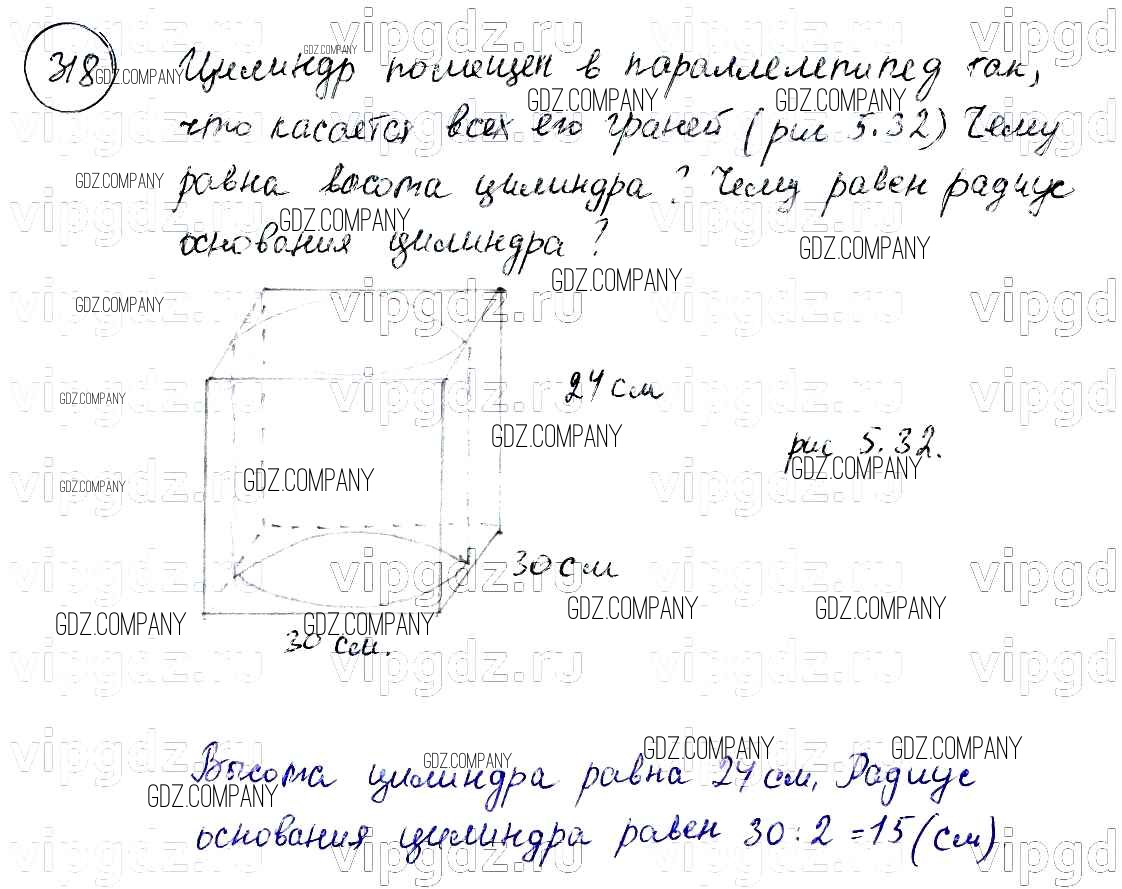 318 Цилиндр помещен в параллелепипед так,
что касается всех его граней (рис 5.32) Чему
равна высота цилиндра? Чему равен радиус
основания цилиндра?
24 см
рис 5.32.
30 см
30 см.
Высота цилиндра равна 24 см. Радиус
основания цилиндра равен 30:2=15 (см)
vipgdz.ru
GDZ.COMPANY